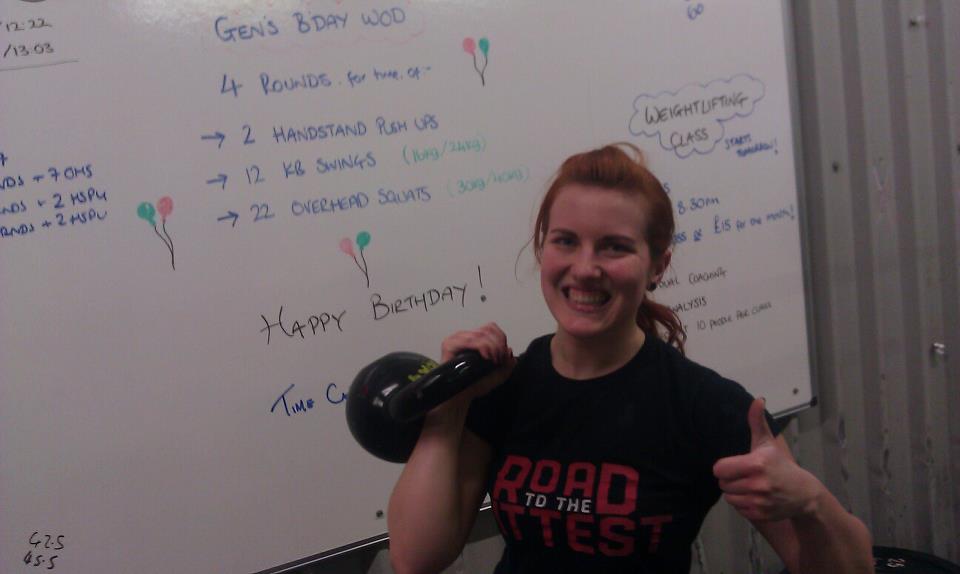 12:22
/13:03
7
NDS + 7 OHS
NDS + 2 HSPU
RNDS + 2 HSPU
42.5
45.5
GEN'S B'DAY WOD
4 ROUNDS for time of:-
→ 2 HANDSTAND PUSH UPS
→ 12 KB SWINGS (16kg/24kg)
→ 22 OVERHEAD SQUATS (30kg/40kg)
HAPPY BIRTHDAY!
TIME C
60
WEIGHTLIFTING
CLASS
STARTS
TOMORROW!
S
8.30pm
ss or £15 for the month!
DUAL COACHING
ANALYSIS
T 10 PEOPLE PER CLASS
ROAD
TO THE
ITTEST
25